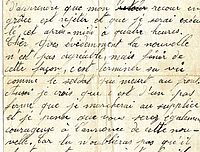 d'apprendre que mon recours en
grâce est rejeté et que je serai exécu-
té cet après-midi à quatre heures.
Cher Yves évidemment la nouvelle
n'est pas agréable, mais finir de
cette façon, c'est terminer sa vie
comme le soldat qui meurt au front
Aussi je crois que c'est d'un pas
ferme que je marcherai au supplice
et je pense que vous serez également
courageux à l'annonce de cette nou-
velle, car tu n'oublieras pas qu'il